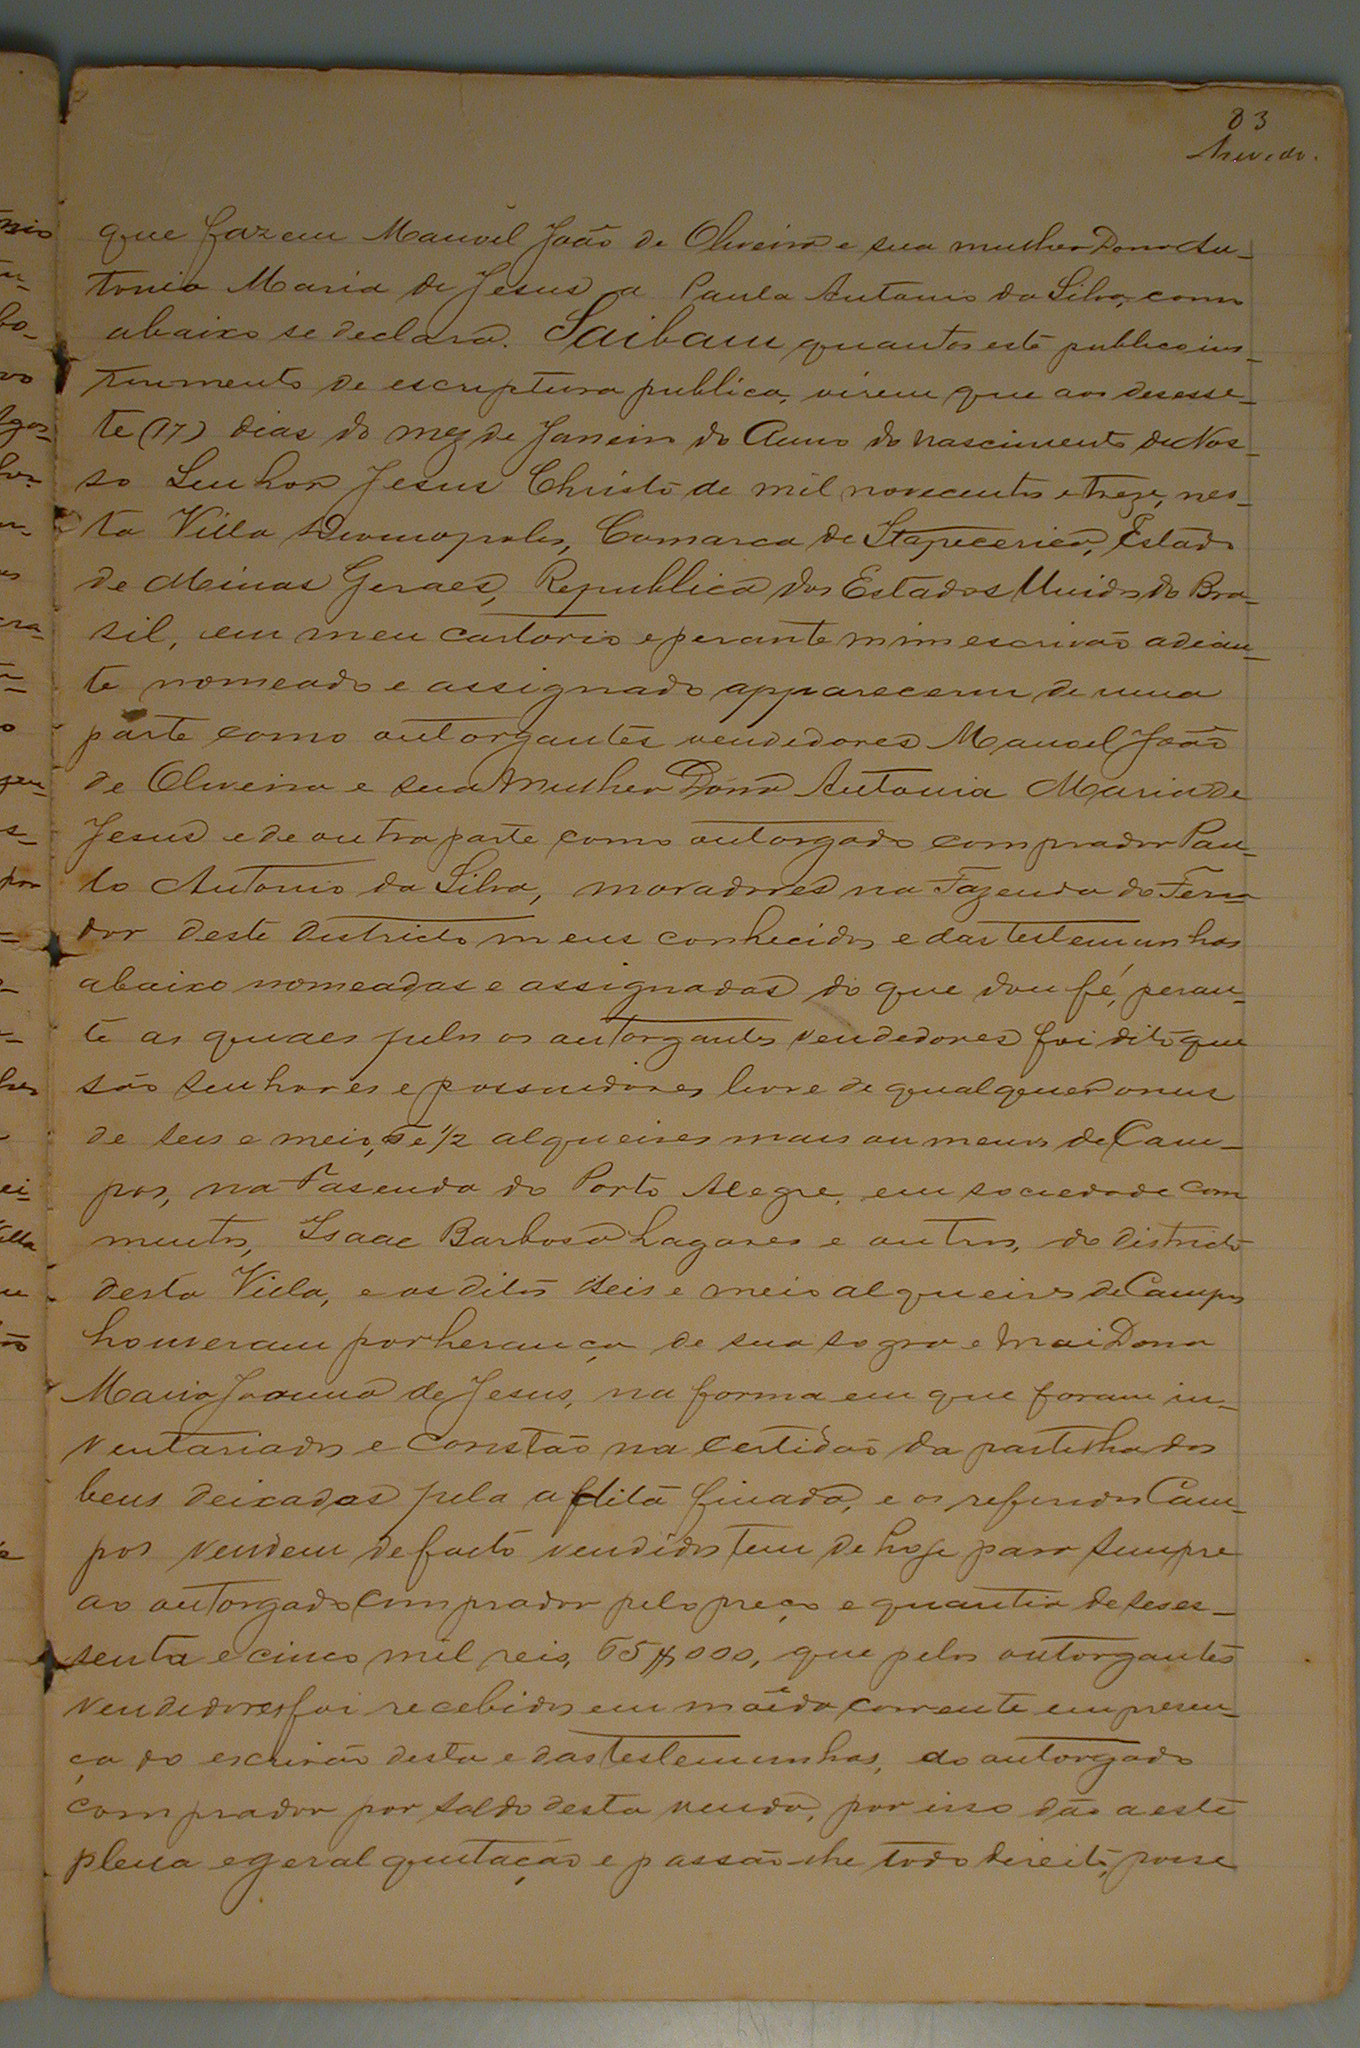 83
Azevedo.
que fazem Manoel João de Oliveira e sua mulher Dona An-
tonia Maria de Jesus a Paulo Antonio da Silva, como
abaixo se declara. Saibam quantos este publico ins-
trumento de escriptura publica, virem que aos desesse-
te (17) dias do mez de Janeiro do Anno do nascimento de Nos-
so Senhor Jesus Christo de mil novecentos e treze, nes-
ta Villa Divinopolis, Comarca de Itapecerica, Estado
de Minas Geraes, Republica dos Estados Unidos do Bra-
sil, em meu cartorio e perante mim escrivão adian-
te nomeado e assignado appareceram de uma
parte como outorgantes vendedores Manoel João
de Oliveira e sua mulher Dona Antonia Maria de
Jesus e de outra parte como outorgado comprador Pau-
lo Antonio da Silva, moradores na Fazenda do Ferra
dor deste districto meus conhecidos e das testemunhas
abaixo nomeadas e assignadas do que dou fé, peran-
te as quaes pelos os outorgantes vendedores foi dito que
são senhores e possuidores livre de qualquer onus
de seis e meio, 6 e 1/2 alqueires mais ou menos de Cam-
pos, na Fasenda do Porto Alegre, em sociedade com
muitos, Isaac Barbosa Lagares e outros, do districto
desta Villa, e os ditos seis e meio alqueires de Campos
houveram por herança de sua sogra e mai Dona
Maria Joanna de Jesus, na forma em que foram in-
ventariados e constão na certidão da partilha dos
bens deixados pela a dita finada, e os referidos Cam-
pos vendem de facto vendidos tem de hoje para sempre
ao outorgado comprador pelo preço e quantia de seses-
senta e cinco mil reis, 65$000, que pelos outorgantes
vendedores foi recebidos em moéda corrente em presen-
ça do escrivão desta e das testemunhas, do outorgado
comprador por saldo desta venda, por isso dão a este
plena e geral quitação e passão-lhe todo direito, posse